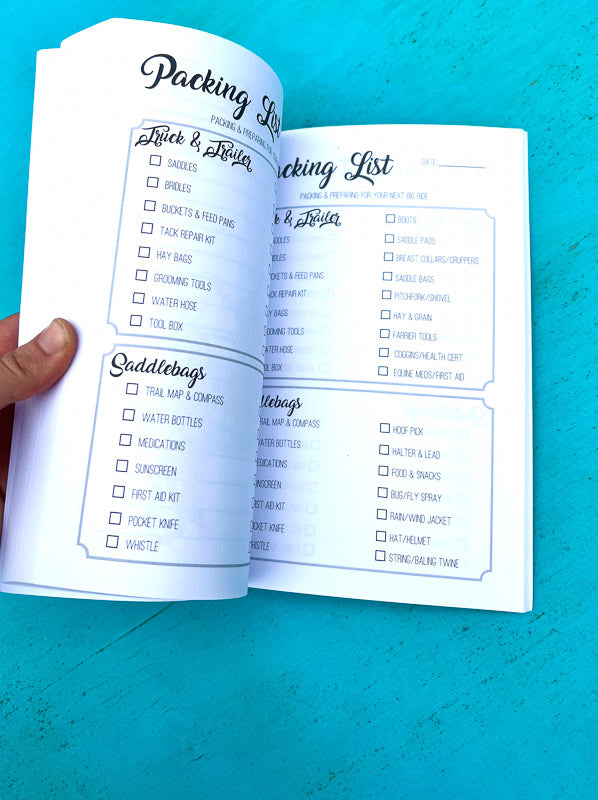 Packing List
PACKING & PREPARING FOR
Truck & Trailer
SADDLES
BRIDLES
BUCKETS & FEED PANS
TACK REPAIR KIT
HAY BAGS
GROOMING TOOLS
WATER HOSE
TOOL BOX
Saddlebags
TRAIL MAP & COMPASS
WATER BOTTLES
MEDICATIONS
SUNSCREEN
FIRST AID KIT
POCKET KNIFE
WHISTLE
acking List
DATE
PACKING & PREPARING FOR YOUR NEXT BIG RIDE
k & Trailer
DDLES
DLES
CKETS & FEED PANS
CK REPAIR KIT
Y BAGS
OOMING TOOLS
TER HOSE
OL BOX
BOOTS
SADDLE PADS
BREAST COLLARS/CRUPPERS
SADDLE BAGS
PITCHFORK/SHOVEL
HAY & GRAIN
FARRIER TOOLS
COGGINS/HEALTH CERT
EQUINE MEDS/FIRST AID
dlebags
TRAIL MAP & COMPASS
WATER BOTTLES
MEDICATIONS
SUNSCREEN
RST AID KIT
OCKET KNIFE
HISTLE
HOOF PICK
HALTER & LEAD
FOOD & SNACKS
BUG/FLY SPRAY
RAIN/WIND JACKET
HAT/HELMET
STRING/BALING TWINE